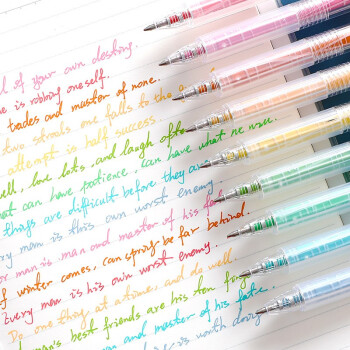 of your own destiny.
is robbing oneself.
trades and master of none.
two strools one falls to the
attempt is half success
well, love lots, and laugh often
that can have patience, can have what he
things are difficult before they are
Every man is his own worst enemy.
man is man and master of his fa
If winter comes, can spring be far behind.
Every man is his own worst enemy.
Do one thing at a time, and do well.
man's best friends are his ten fing
man and master of his fate.
is worth doing